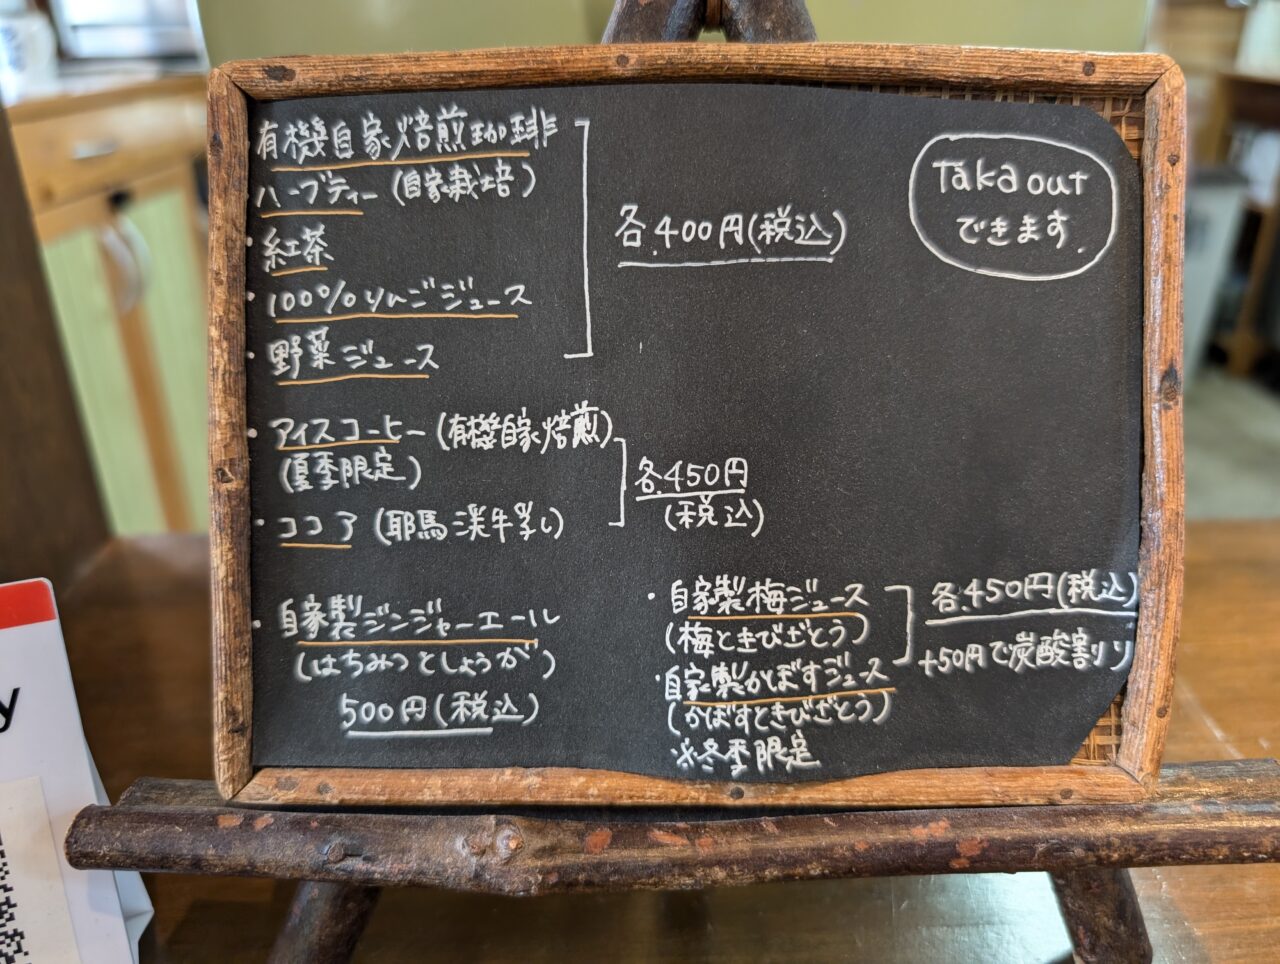 有機自家焙煎珈琲
ハーブティー(自家栽培)
・紅茶
・100%りんごジュース
・野菜ジュース
各400円(税込)
Taka out
できます.
・アイスコーヒー(有機自家焙煎)
(夏季限定)
・ココア(耶馬渓牛乳)
各450円
(税込)
・自家製ジンジャーエール
(はちみつとしょうが)
500円(税込)
・自家製梅ジュース
(梅ときびざとう)
・自家製かぼすジュース
(かぼすときびざとう)
※冬季限定
各450円(税込)
+50円で炭酸割り
y